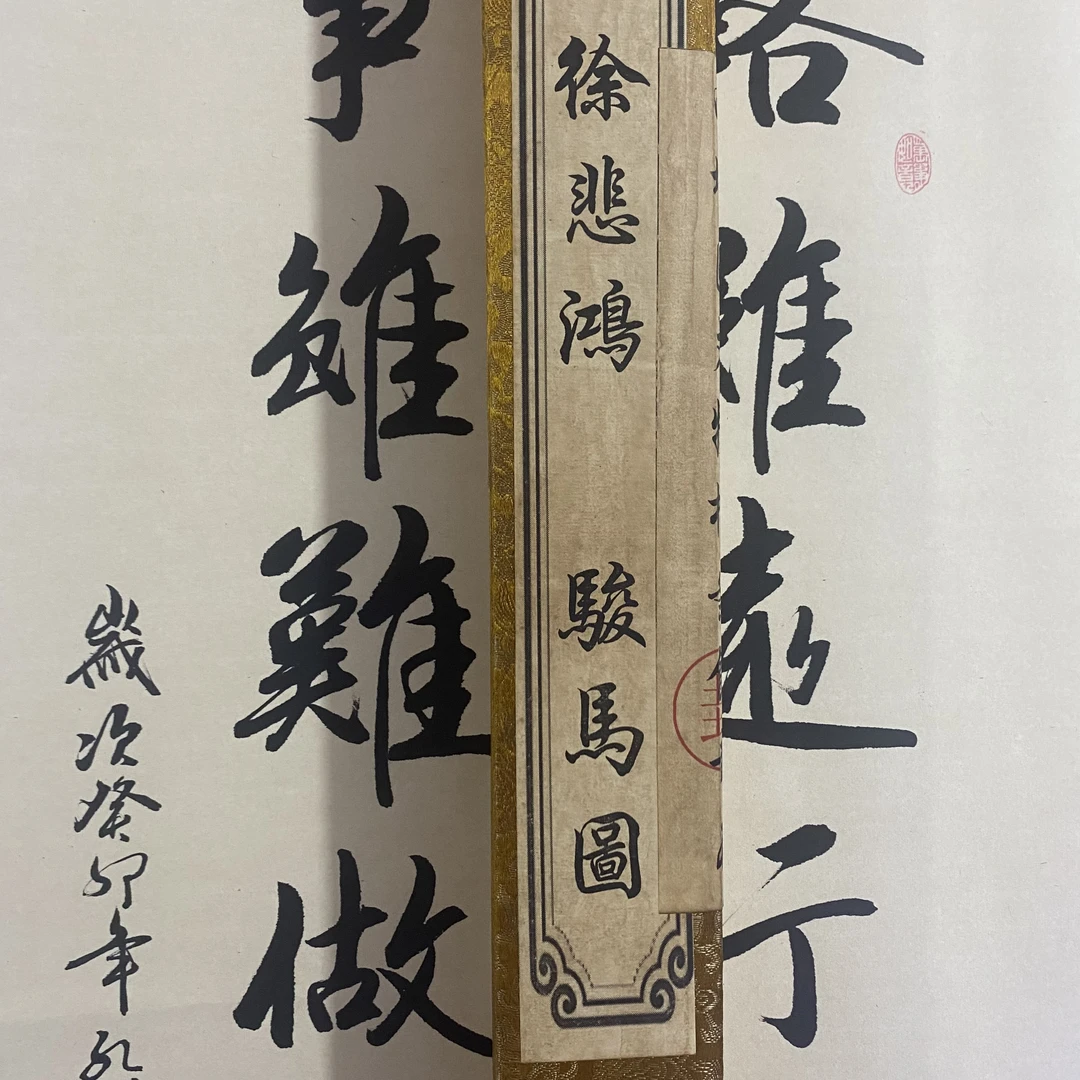 路雖遠行
徐悲鴻 駿馬圖
事雖難做
歲次癸卯年